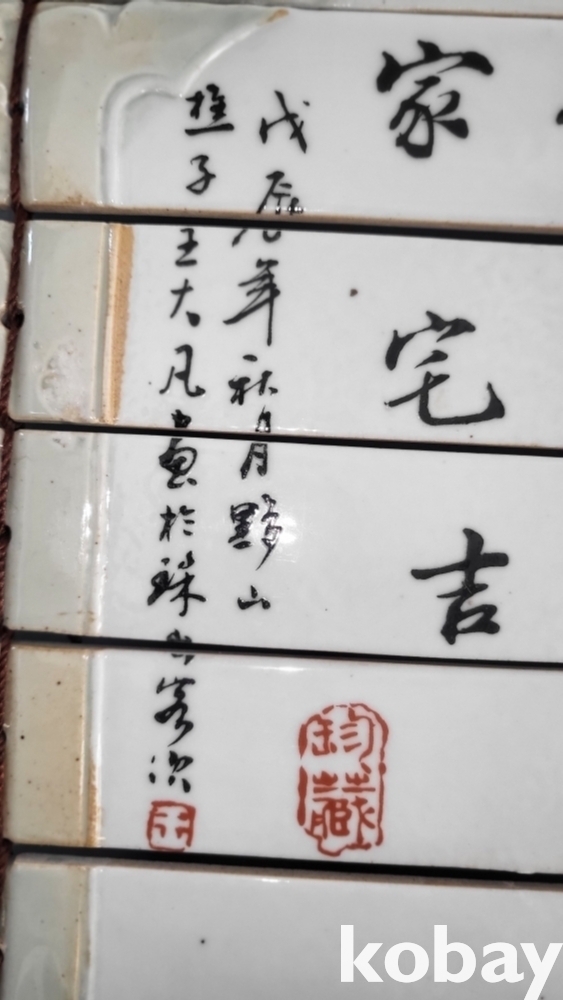 家宅吉
戊辰年秋月黟山
樵子王大凡畫於珠山客次
藏